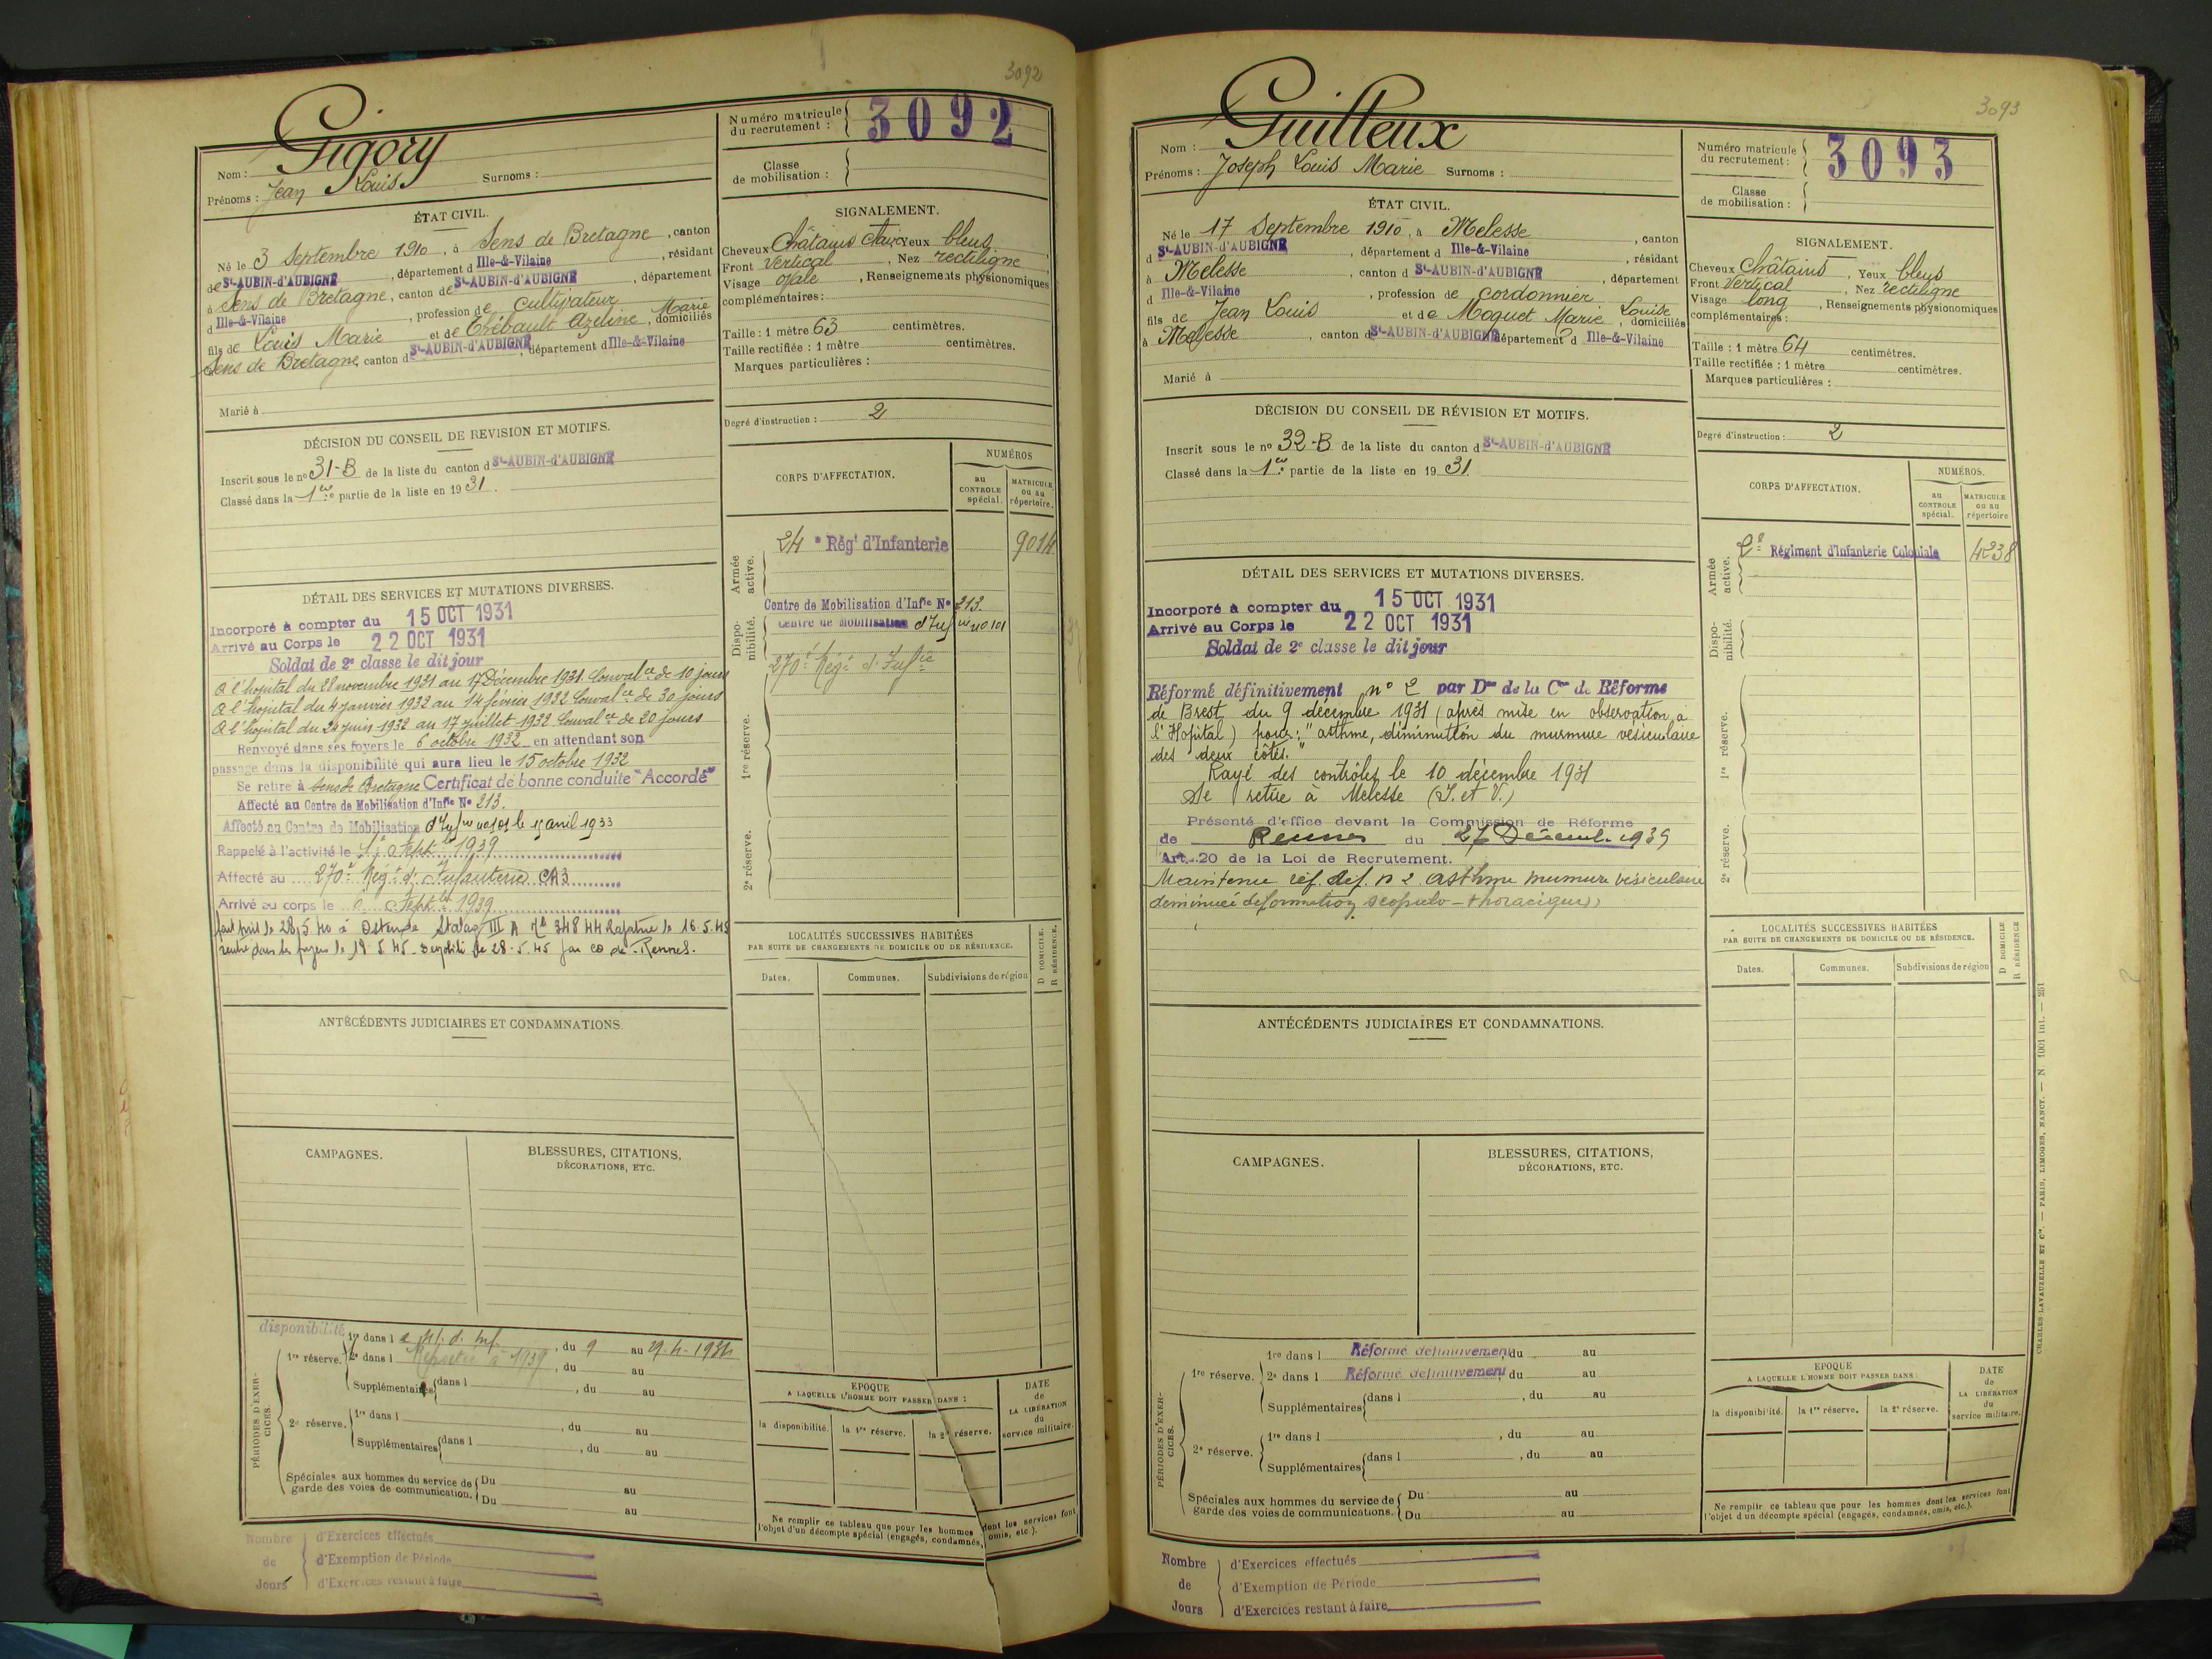 3092
Nom : Gigory
Prénoms : Jean Louis Surnoms :
Numéro matricule du recrutement : 3092
Classe de mobilisation :
ÉTAT CIVIL.
Né le 3 Septembre 1910, à Sens de Bretagne, canton
de St-AUBIN-d'AUBIGNÉ, département d Ille-&-Vilaine, résidant
à Sens de Bretagne, canton de St-AUBIN-d'AUBIGNÉ, département
d Ille-&-Vilaine, profession de cultivateur
fils de Louis Marie et de Thébault Azeline Marie, domiciliés
Sens de Bretagne, canton d St-AUBIN-d'AUBIGNÉ, département d Ille-&-Vilaine
Marié à
SIGNALEMENT.
Cheveux Châtains clair Yeux bleus
Front vertical, Nez rectiligne
Visage ovale, Renseignements physionomiques
complémentaires :
Taille : 1 mètre 63 centimètres.
Taille rectifiée : 1 mètre centimètres.
Marques particulières :
Degré d'instruction : 2
DÉCISION DU CONSEIL DE REVISION ET MOTIFS.
Inscrit sous le no 31-B de la liste du canton d St-AUBIN-d'AUBIGNÉ
Classé dans la 1re partie de la liste en 1931.
CORPS D'AFFECTATION.
NUMÉROS
au CONTROLE spécial.
MATRICULE ou au répertoire.
Armée active.
24e Régt d'Infanterie 9014
Disponibilité.
Centre de Mobilisation d'Infie No 213.
Centre de Mobilisation d'Infie no 101
270e Régt d'Infie
1re réserve.
2e réserve.
DÉTAIL DES SERVICES ET MUTATIONS DIVERSES.
Incorporé à compter du 15 OCT 1931
Arrivé au Corps le 22 OCT 1931
Soldat de 2e classe le dit jour
A l'hopital du 28 novembre 1931 au 17 Décembre 1931 Convalce de 10 jours
A l'hopital du 4 janvier 1932 au 14 février 1932 Convalce de 30 jours
A l'hopital du 20 juin 1932 au 17 juillet 1932 Convalce de 20 jours
Renvoyé dans ses foyers le 6 octobre 1932 en attendant son
passage dans la disponibilité qui aura lieu le 15 octobre 1932
Se retire à Sens de Bretagne Certificat de bonne conduite "Accordé"
Affecté au Centre de Mobilisation d'Infie No 213.
Affecté au Centre de Mobilisation d'Infie no 101 le 15 avril 1933
Rappelé à l'activité le Septbre 1939
Affecté au 270e Régt d'Infanterie CA3
Arrivé au corps le Septbre 1939
fait pris le 28.5.40 à Ostende Stalag III A No 34844 Rapatrié le 16.5.45
rentré dans les foyers le 19.5.45. Démobilisé le 28.5.45 par CD de Rennes.
LOCALITÉS SUCCESSIVES HABITÉES
PAR SUITE DE CHANGEMENTS DE DOMICILE OU DE RÉSIDENCE.
Dates. Communes. Subdivisions de région
D DOMICILE. R RÉSIDENCE.
ANTÉCÉDENTS JUDICIAIRES ET CONDAMNATIONS.
CAMPAGNES.
BLESSURES, CITATIONS,
DÉCORATIONS, ETC.
disponibilité
PÉRIODES D'EXERCICES.
1re réserve. 1re dans l , du 9 au 29.4.1934
2e dans l Reportée à 1939, du au
Supplémentaires dans l , du au
2e réserve. 1re dans l , du au
Supplémentaires dans l , du au
Spéciales aux hommes du service de garde des voies de communication. Du au
Du au
EPOQUE
A LAQUELLE L'HOMME DOIT PASSER DANS :
la disponibilité. la 1re réserve. la 2e réserve.
DATE de LA LIBÉRATION du service militaire.
Ne remplir ce tableau que pour les hommes dont les services font
l'objet d'un décompte spécial (engagés, condamnés, omis, etc.).
Nombre de Jours
d'Exercices effectués
d'Exemption de Période
d'Exercices restant à faire
3093
Nom : Guilleux
Prénoms : Joseph Louis Marie Surnoms :
Numéro matricule du recrutement : 3093
Classe de mobilisation :
ÉTAT CIVIL.
Né le 17 Septembre 1910, à Melesse, canton
d St-AUBIN-d'AUBIGNÉ, département d Ille-&-Vilaine, résidant
à Melesse, canton d St-AUBIN-d'AUBIGNÉ, département
d Ille-&-Vilaine, profession de cordonnier
fils de Jean Louis et de Moquet Marie Louise, domiciliés
à Melesse, canton d St-AUBIN-d'AUBIGNÉ département d Ille-&-Vilaine
Marié à
SIGNALEMENT.
Cheveux Châtains, Yeux bleus
Front Vertical, Nez rectiligne
Visage long, Renseignements physionomiques
complémentaires :
Taille : 1 mètre 64 centimètres.
Taille rectifiée : 1 mètre centimètres.
Marques particulières :
Degré d'instruction : 2
DÉCISION DU CONSEIL DE RÉVISION ET MOTIFS.
Inscrit sous le no 32-B de la liste du canton d St-AUBIN-d'AUBIGNÉ
Classé dans la 1re partie de la liste en 1931.
CORPS D'AFFECTATION.
NUMÉROS.
au CONTROLE spécial.
MATRICULE ou au répertoire
Armée active.
2e Régiment d'Infanterie Coloniale 4238
Disponibilité.
1re réserve.
2e réserve.
DÉTAIL DES SERVICES ET MUTATIONS DIVERSES.
Incorporé à compter du 15 OCT 1931
Arrivé au Corps le 22 OCT 1931
Soldat de 2e classe le dit jour
Réformé définitivement no 2 par Don de la Con de Réforme
de Brest du 9 décembre 1931 (après mise en observation à
l'Hôpital) pour : "asthme, diminution du murmure vésiculaire
des deux côtés."
Rayé des contrôles le 10 décembre 1931
Se retire à Melesse (I. et V.)
Présenté d'office devant la Commission de Réforme
de Rennes du 27 Décemb. 1939
Art. 20 de la Loi de Recrutement.
Maintenu réf. def. n 2 asthme mumure vésiculaire
diminué déformation scapulo-thoracique
LOCALITÉS SUCCESSIVES HABITÉES
PAR SUITE DE CHANGEMENTS DE DOMICILE OU DE RÉSIDENCE.
Dates. Communes. Subdivisions de région
D DOMICILE R RÉSIDENCE
ANTÉCÉDENTS JUDICIAIRES ET CONDAMNATIONS.
CAMPAGNES.
BLESSURES, CITATIONS,
DÉCORATIONS, ETC.
PÉRIODES D'EXERCICES.
1re réserve. 1re dans l Réformé définitivement du au
2e dans l Réformé définitivement du au
Supplémentaires dans l , du au
2e réserve. 1re dans l , du au
Supplémentaires dans l , du au
Spéciales aux hommes du service de garde des voies de communications. Du au
Du au
EPOQUE
A LAQUELLE L'HOMME DOIT PASSER DANS :
la disponibilité. la 1re réserve. la 2e réserve.
DATE de LA LIBÉRATION du service militaire.
Ne remplir ce tableau que pour les hommes dont les services font
l'objet d'un décompte spécial (engagés, condamnés, omis, etc.).
Nombre de Jours
d'Exercices effectués
d'Exemption de Période
d'Exercices restant à faire
CHARLES-LAVAUZELLE ET Cie. — PARIS, LIMOGES, NANCY. — N. 1001 int. — 251